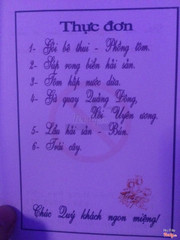 Thực đơn
1- Gỏi bò thui - Phồng tôm.
2- Súp rong biển hải sản.
3- Tôm hấp nước dừa.
4- Gà quay Quảng Đông,
Xôi Uyên ương.
5- Lẩu hải sản - Bún.
6- Trái cây.
Chúc Quý khách ngon miệng!